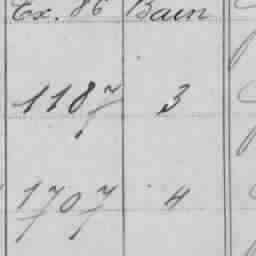 Ex. 86 Bain
1187 3
1707 4